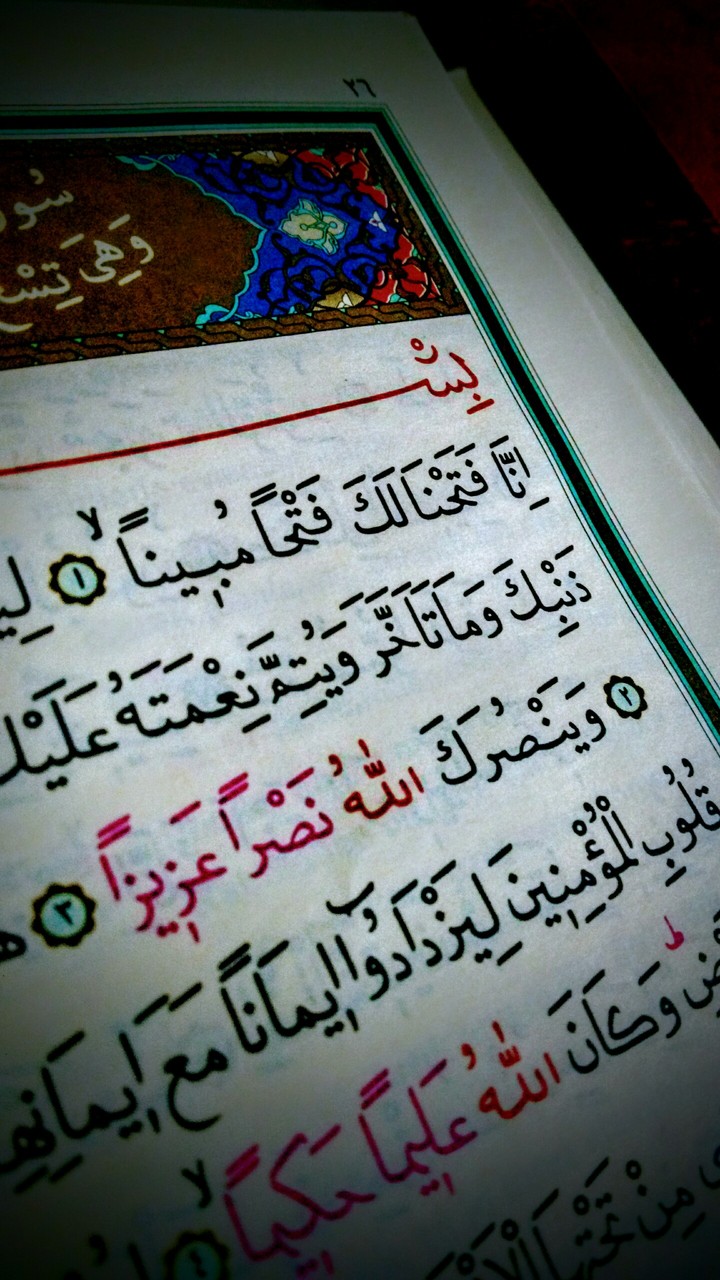 ٢٦
وَهِىَ
بِسْ
اِنَّا فَتَحْنَا لَكَ فَتْحاً مُبٖيناً ﴿١﴾
ذَنْبِكَ وَمَا تَاَخَّرَ وَيُتِمَّ نِعْمَتَهُ عَلَيْكَ
﴿٢﴾ وَيَنْصُرَكَ اللّٰهُ نَصْراً عَزٖيزاً ﴿٣﴾
قُلُوبِ الْمُؤْمِنٖينَ لِيَزْدَادُٓوا اٖيمَاناً مَعَ اٖيمَانِهِ
وَكَانَ اللّٰهُ عَلٖيماً حَكٖيماً ﴿٤﴾
مِنْ تَحْتِهَا